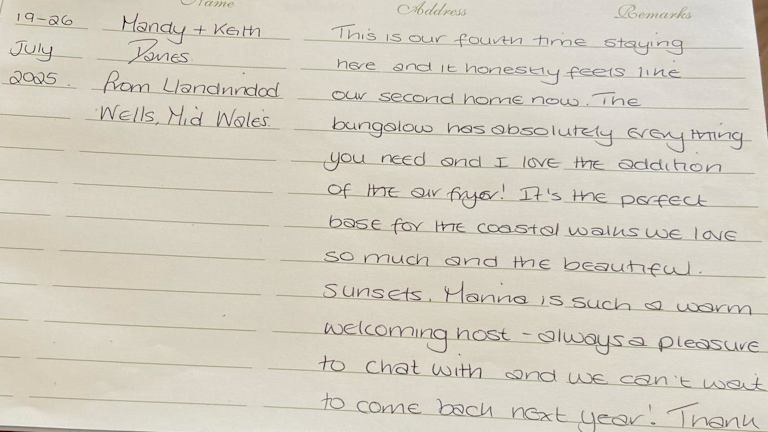 Name Address Remarks
19-26 Mandy + Keith This is our fourth time staying
July Davies here and it honestly feels like
2025. from Llandrindod our second home now. The
Wells, Mid Wales. bungalow has absolutely everything
you need and I love the addition
of the air fryer! It's the perfect
base for the coastal walks we love
so much and the beautiful.
sunsets. Marina is such a warm
welcoming host - always a pleasure
to chat with and we can't wait
to come back next year! Thank